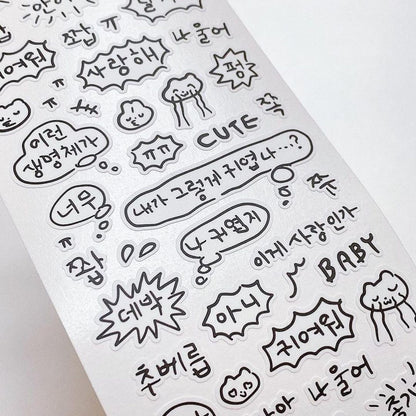 쫩 ㅠ
나 울어
귀여워
사랑해
펑
ㅠ
쪽
이런
생명체가
ㅠㅠ
CUTE
내가 그렇게 귀엽나...?
너무
쭈
나 귀엽지
ㅠ
쫩
이게 사랑인가
BABY
데박
아니
귀여워
추베릅
나 울어